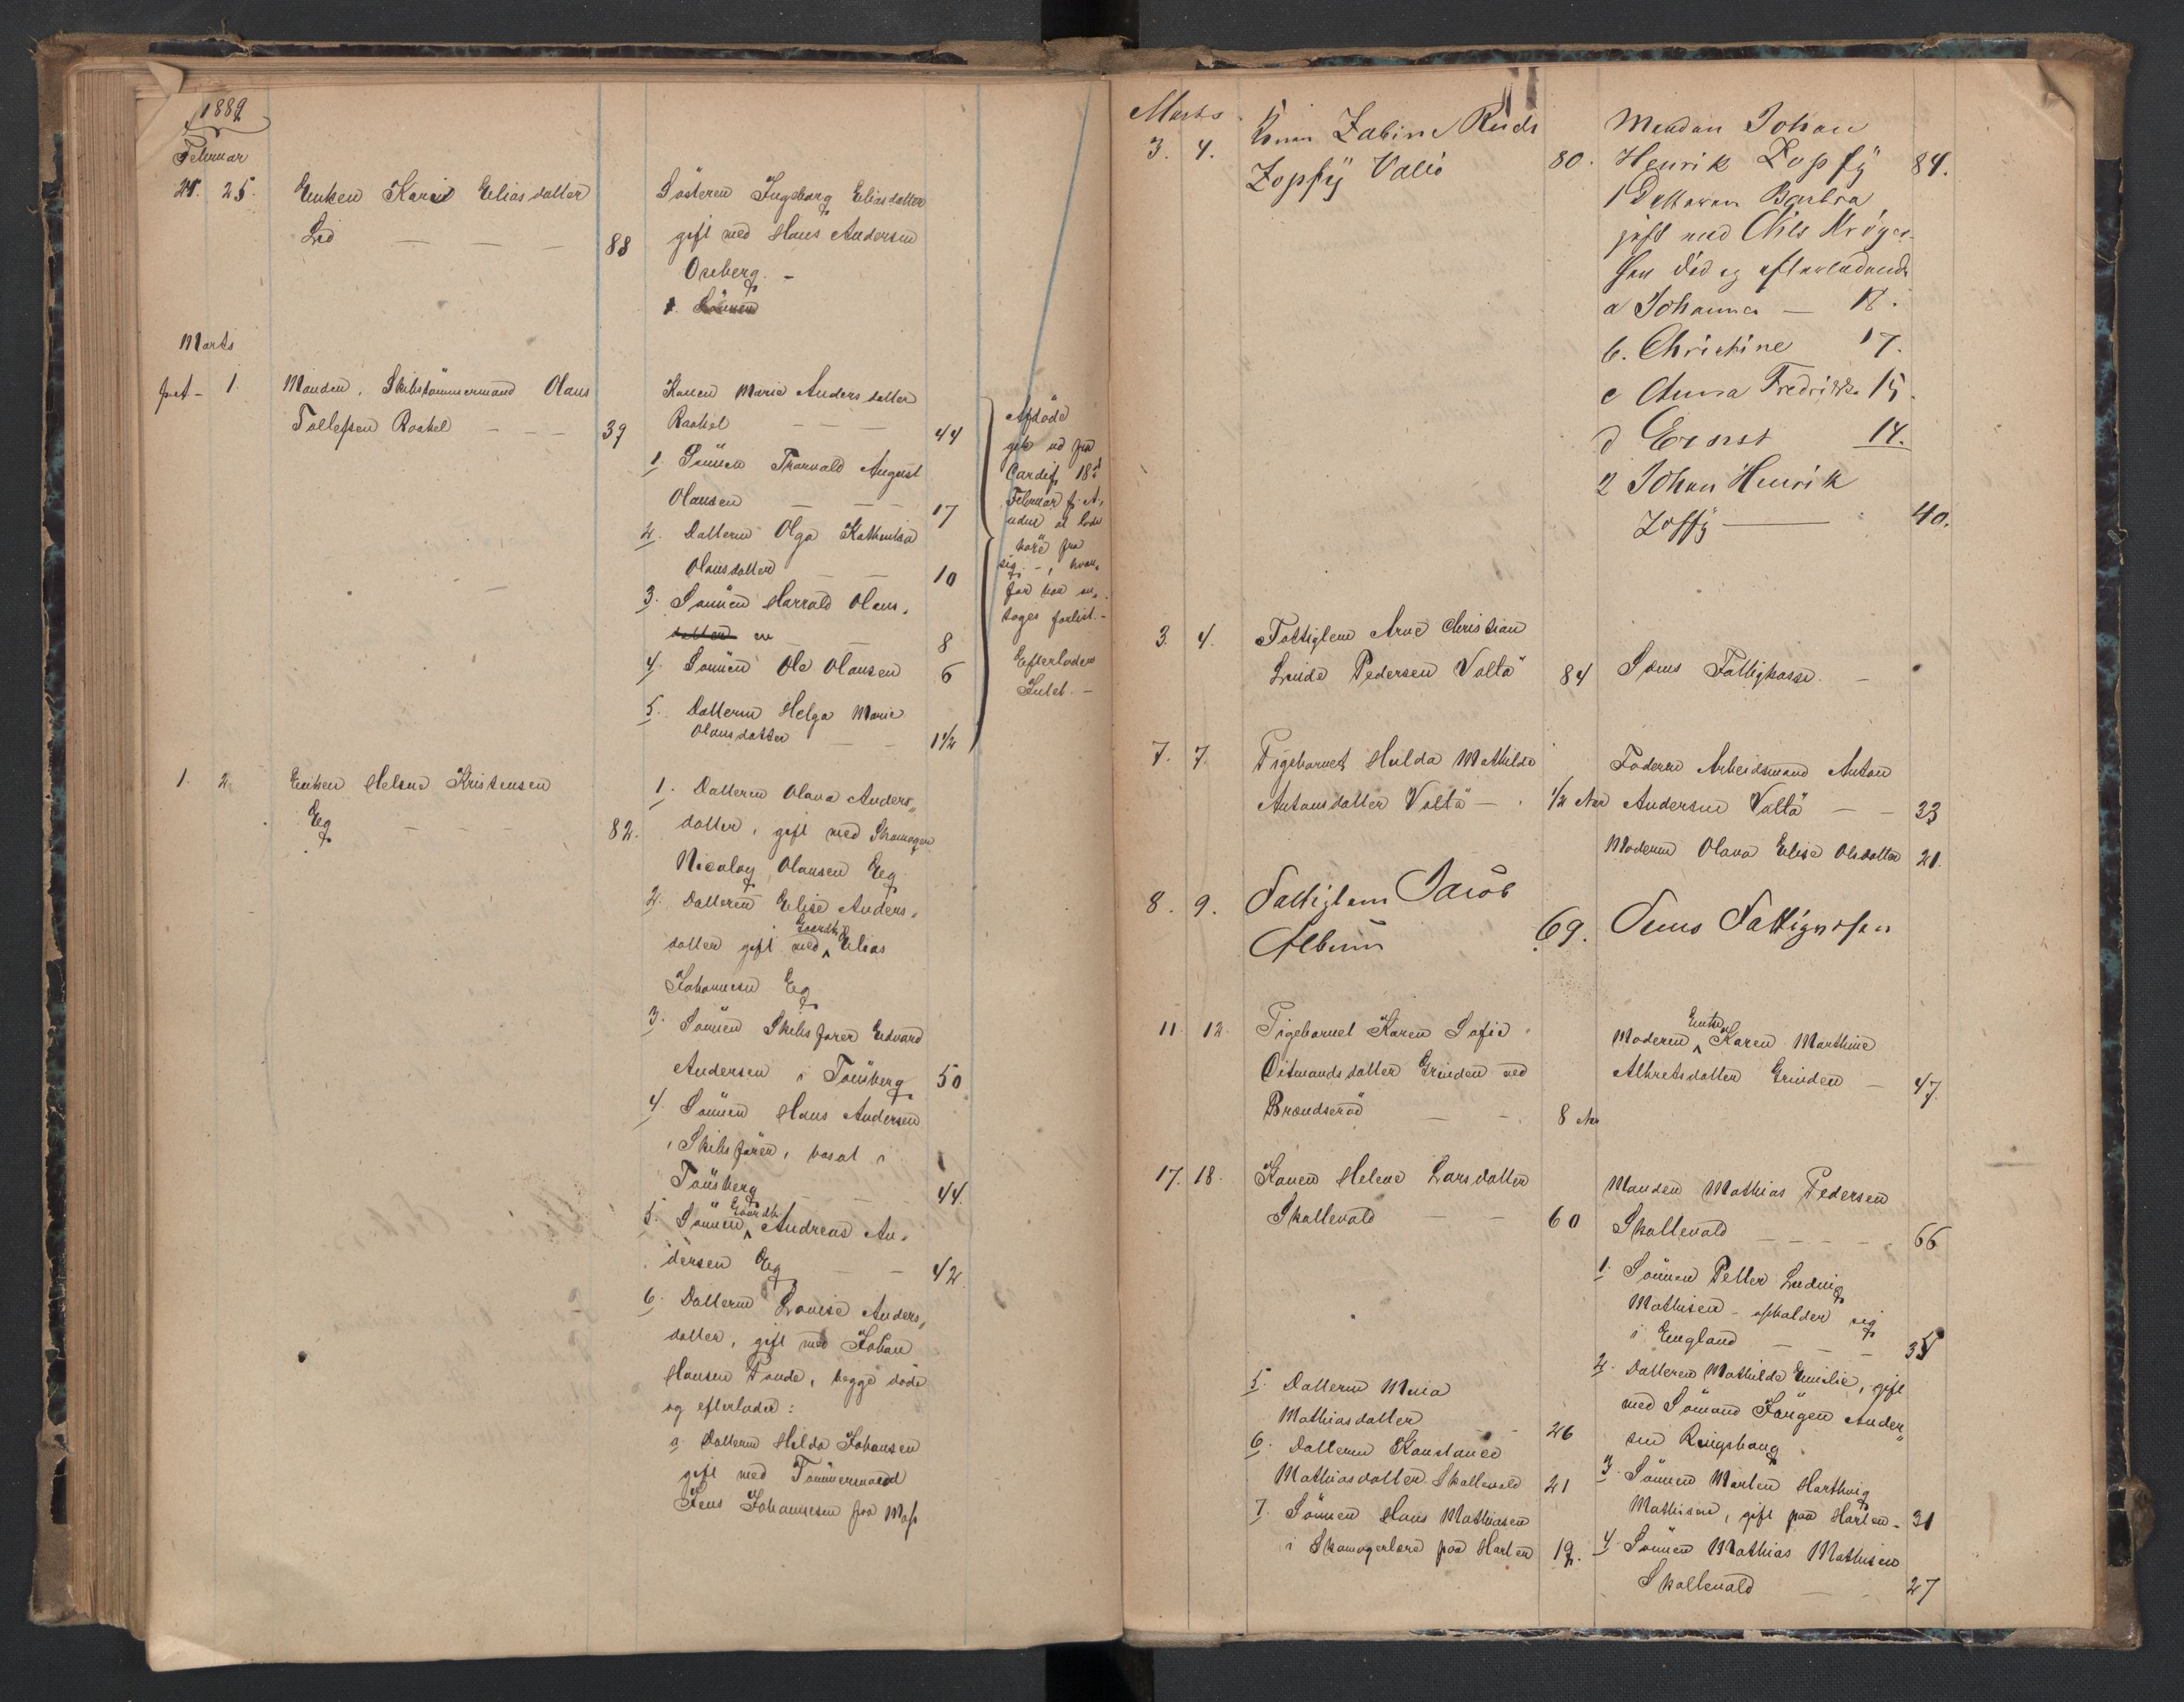 1889
Februar
21. 25. Enken Karis Eliasdatter
Lid — — — 88
Søsteren Ingeborg Eliasdatter
gift med Hans Andersen
Oseberg. -
1. Sönnen
Marts
1. Manden, Skibstömmermand Olaus
Tollefsen Raakel - - - 39
Konen Marie Andersdatter
Raakel — — — 44
1. Sönnen Thorvald August
Olausen — — — 17
2. Datteren Olga Kathinka
Olausdatter — — 10
3. Sönnen Harrald Olaus,
datter en — — 8
4. Sönnen Ole Olausen 6
5. Datteren Helga Marie
Olausdatter — - 1 1/2
Afdöde
gik ud fra
Cardif 18d
Februar f. A.
uden at lade
höre fra
sig -, hvor,
for han an,
tages forlist. -
Efterlader
Intet. -
1. 2. Enken Helene Kristensen
Eg — - - - 82.
1. Datteren Olava Anders,,
datter, gift med Skomager
Nicolay Olausen Eg
2. Datteren Elise Anders,
Gaardb.
datter gift med Elias
Johannesen Eg
3. Sönnen Skibsförer Edvard
Andersen i Tönsberg 50
4. Sönnen Hans Andersen
, Skibsförer, bosat i
Tönsberg — - - 44.
Gaardb.
5. Sönnen Andreas An,
dersen Eg — - 42.
6. Datteren Lovise Anders,,
datter, gift med Johan
Hansen Rande, begge döde
og efterlader:
a. Datteren Hilda Johansen
gift med Tömmermand
Jens Johannesen paa
Marts
3. 4. Konn Zabine Ruds
Zopfÿ Vallö 80.
Mandan Johan
Henrik Zopfÿ 84.
1 Dattaran Barbra
jift med Nils Kröger
han död og aftarladands
a Johanna — 18.
b. Christine 17.
c Anna Fredrikke 15.
d Ernst 14.
2 Johan Henrik
Zoffÿ — 40.
3. 4. Fattiglem Arne Christian
Linde Pedersen Valtö 84
Sems Fattigkasse. —
7. 7. Pigebarnet Hulda Mathilde
Antonsdatter Valtö — 1/2 Aar
Faderen Arbeidsmand Anton
Andersen Valtö — - 33
Moderen Olava Elise Olsdatter 21.
8. 9. Fattiglem Jacob
Album 69.
Sems Fattigvæsen
11. 12. Pigebarnet Karen Sofie
Oitmandsdatter Grinden ved
Brendserød — - 8 Aar
Enke
Moderen Karen Marthine
Albretsdatter Grinden — 47
17. 18. Konen Helene Larsdatter
Skallevald — - 60
Manden Mathias Pedersen
Skallevald - - - - - 66
1. Sönnen Petter Ludvig
Mathisen - opholder sig
i England — — - 35
2. Datteren Mathilde Emilie, gift
med Sömand Jörgen Ander,,
sen Ringshaug
3. Sönnen Marten Harthvig
Mathisen, gift paa Horten - 31
4. Sönnen Mathias Mathisen
Skallevald — - 27
5. Datteren Maria
Mathiasdatter - - 26
6. Datteren Konstance
Mathiasdatter Skallevald 21
7. Sönnen Hans Mathiasen
i Skomagerlære paa Horten 19.